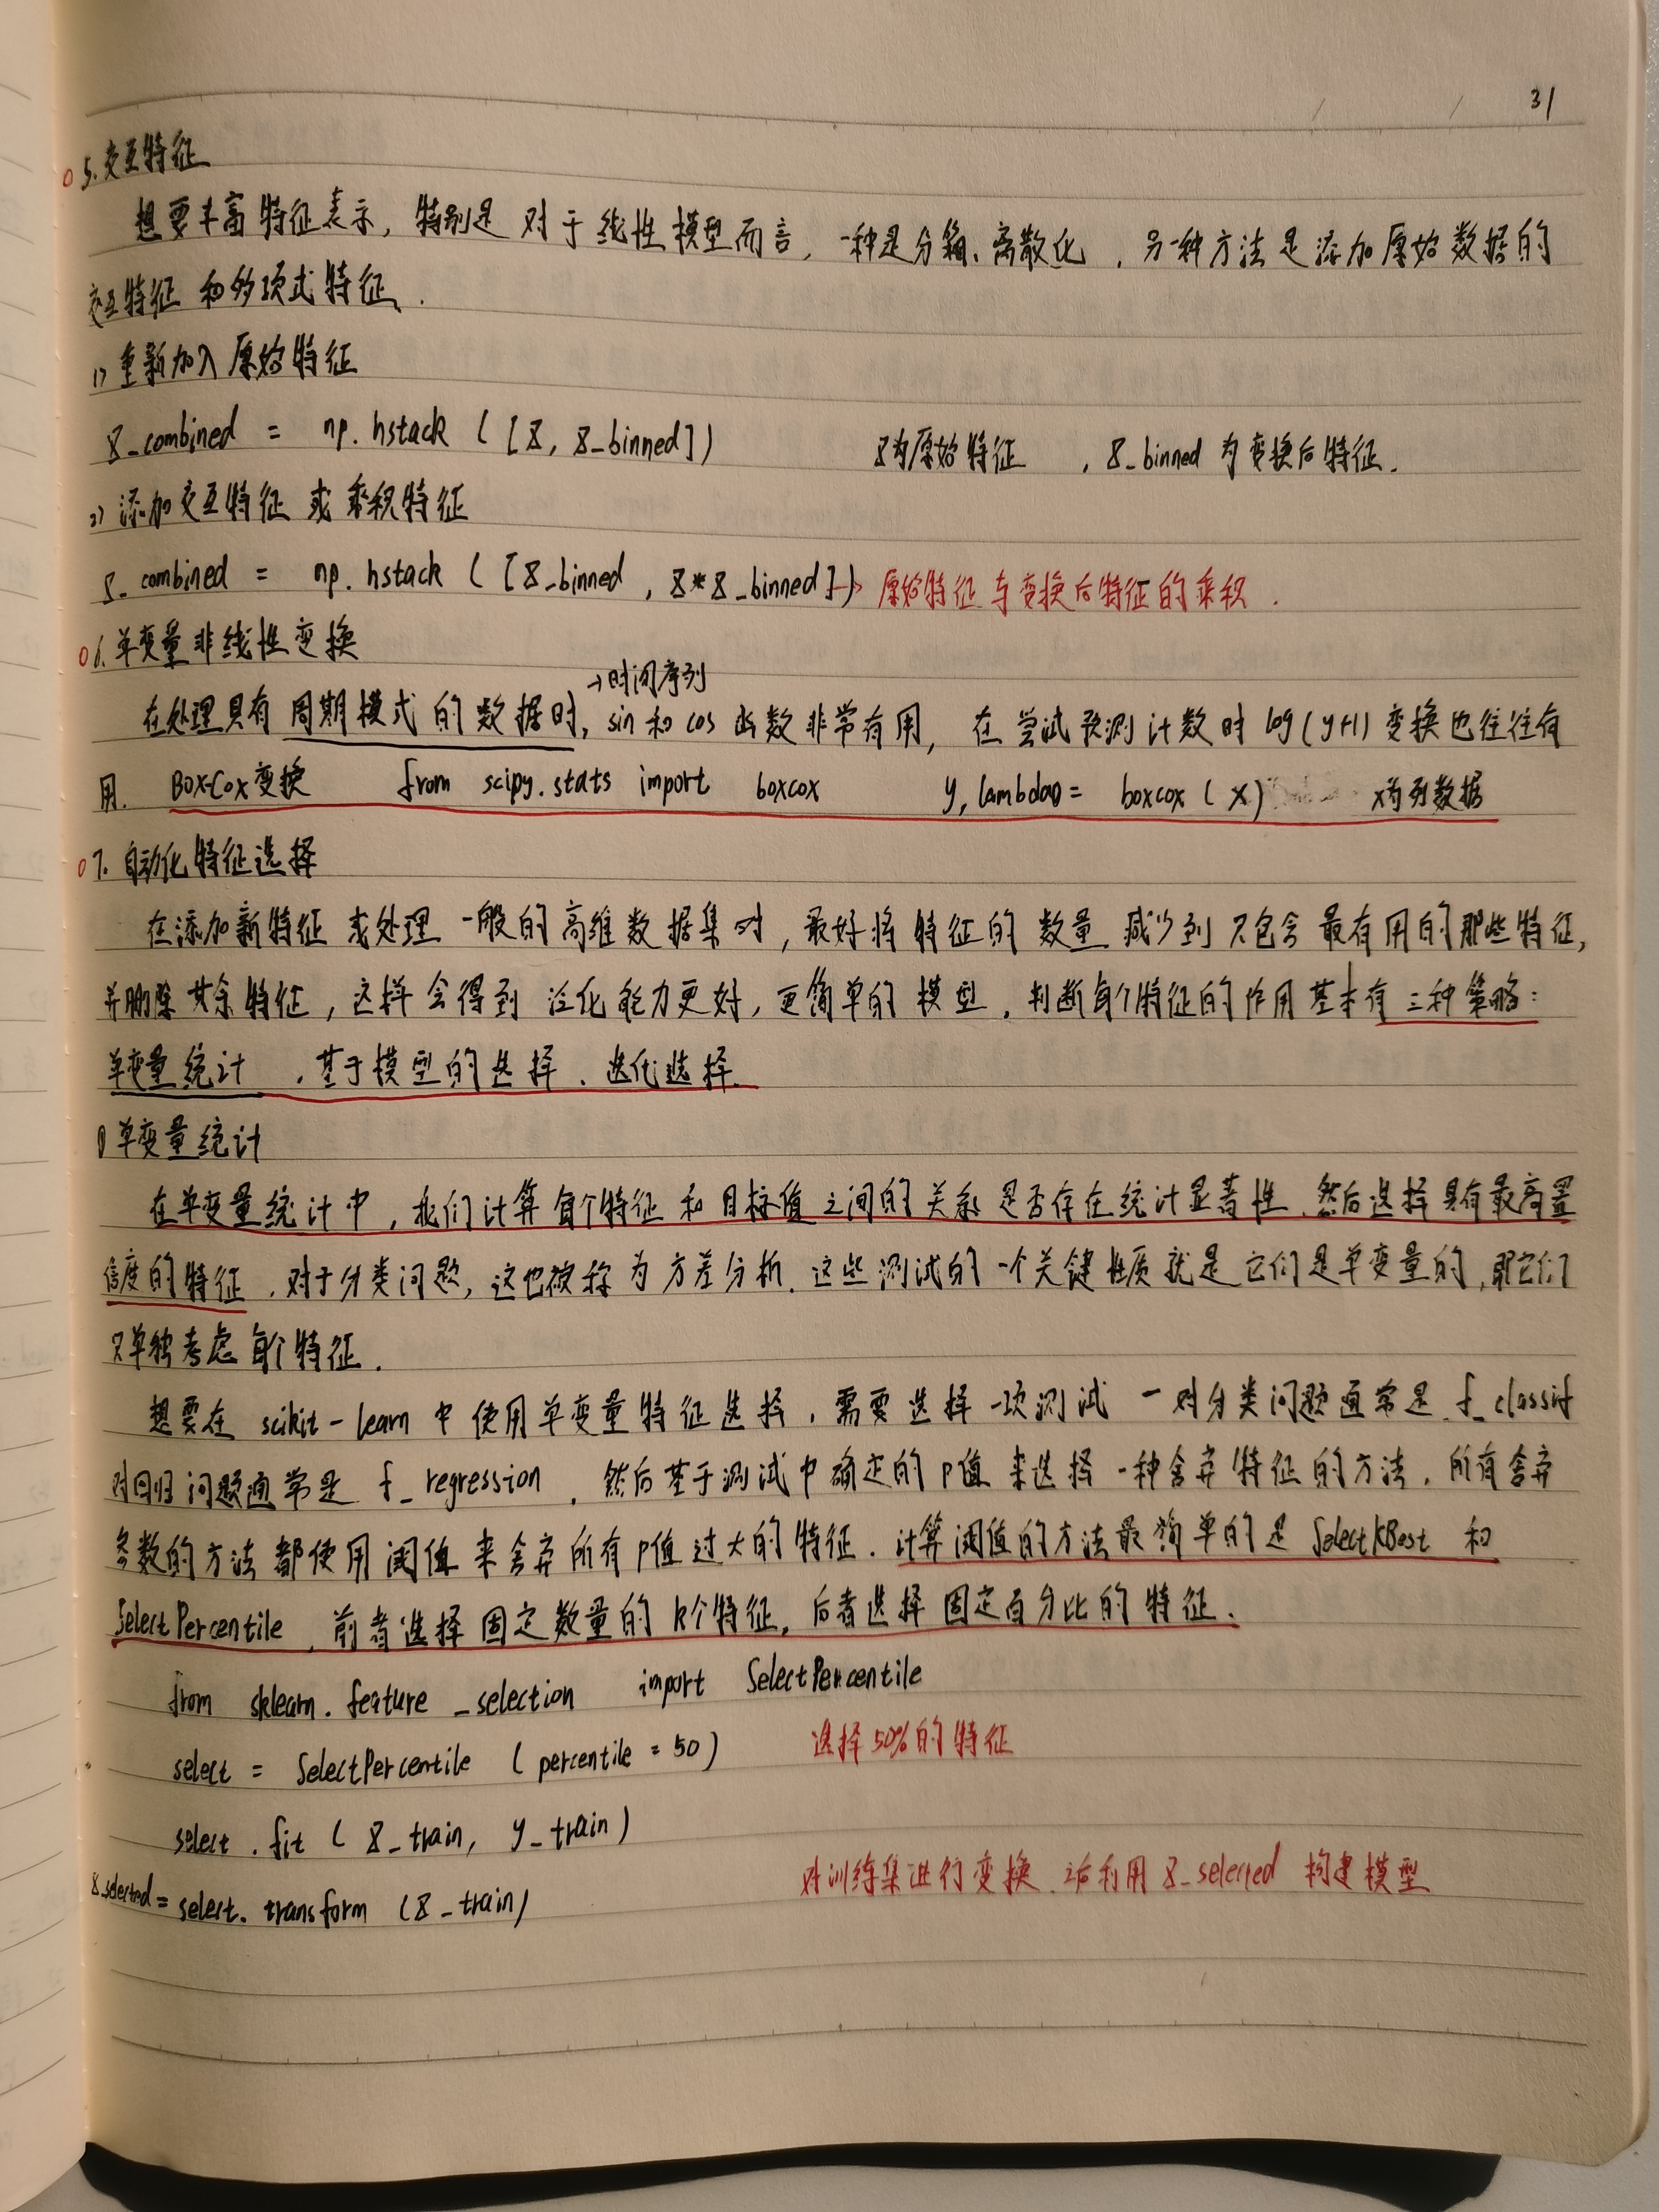 31
5.交互特征
想要丰富特征表示，特别是对于线性模型而言，一种是分箱、离散化，另一种方法是添加原始数据的
交互特征和多项式特征.
1) 重新加入原始特征
X_combined = np.hstack ( [X, X_binned] ) X为原始特征 , X_binned 为变换后特征.
2) 添加交互特征或乘积特征
X_combined = np.hstack ( [X_binned , X*X_binned] ) → 原始特征与变换后特征的乘积 .
6.单变量非线性变换
→时间序列
在处理具有周期模式的数据时, sin和cos函数非常有用, 在尝试预测计数时 log(y+1) 变换也往往有
用. BOX-Cox变换 from scipy.stats import boxcox y, lambda0 = boxcox ( x ) x为列数据
7. 自动化特征选择
在添加新特征或处理一般的高维数据集时, 最好将特征的数量减少到只包含最有用的那些特征,
并删除其余特征, 这样会得到泛化能力更好, 更简单的模型. 判断每个特征的作用基本有三种策略:
单变量统计 , 基于模型的选择 . 迭代选择.
1) 单变量统计
在单变量统计中, 我们计算每个特征和目标值之间的关系是否存在统计显著性. 然后选择具有最高置
信度的特征 . 对于分类问题, 这也被称为方差分析. 这些测试的一个关键性质就是它们是单变量的, 即它们
只单独考虑每个特征.
想要在 scikit-learn 中使用单变量特征选择, 需要选择一项测试 — 对分类问题通常是 f_classif
对回归问题通常是 f_regression . 然后基于测试中确定的P值来选择一种舍弃特征的方法. 所有舍弃
参数的方法都使用阈值来舍弃所有P值过大的特征. 计算阈值的方法最简单的是 SelectKBest 和
SelectPercentile , 前者选择固定数量的K个特征, 后者选择固定百分比的特征.
from sklearn.feature_selection import SelectPercentile
select = SelectPercentile ( percentile = 50 ) 选择50%的特征
select.fit ( X_train, y_train )
X_selected = select.transform (X_train) 对训练集进行变换. 之后利用 X_selected 构建模型